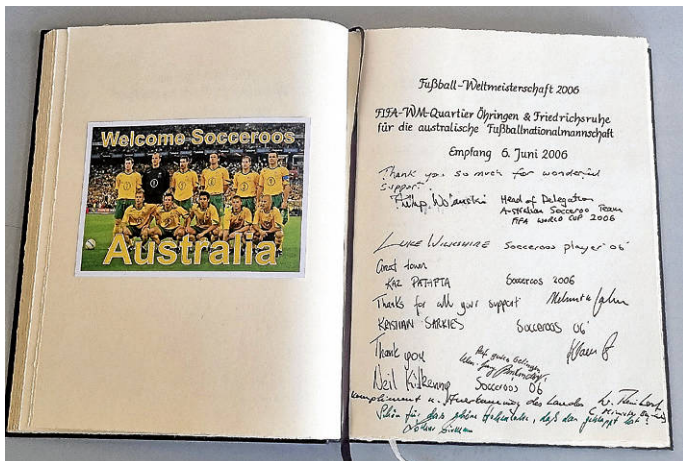 Welcome Socceroos
Australia
Fußball-Weltmeisterschaft 2006
FIFA-WM-Quartier Öhringen & Friedrichsruhe
für die australische Fußballnationalmannschaft
Empfang 6. Juni 2006
Thank you so much for wonderful
support.
Head of Delegation
Australian Socceroo Team
FIFA WORLD CUP 2006
LUKE WILKSHIRE Socceroos player 06'
Great town
KAZ PATAFTA Socceroos 2006
Thanks for all your support
KRISTIAN SARKIES Socceroos 06'
Thank you
Neil Kilkenny Socceroos 06
Kompliment u. Anerkennung des Landes
Schön für das schöne Hohenlohe, daß das geklappt hat!